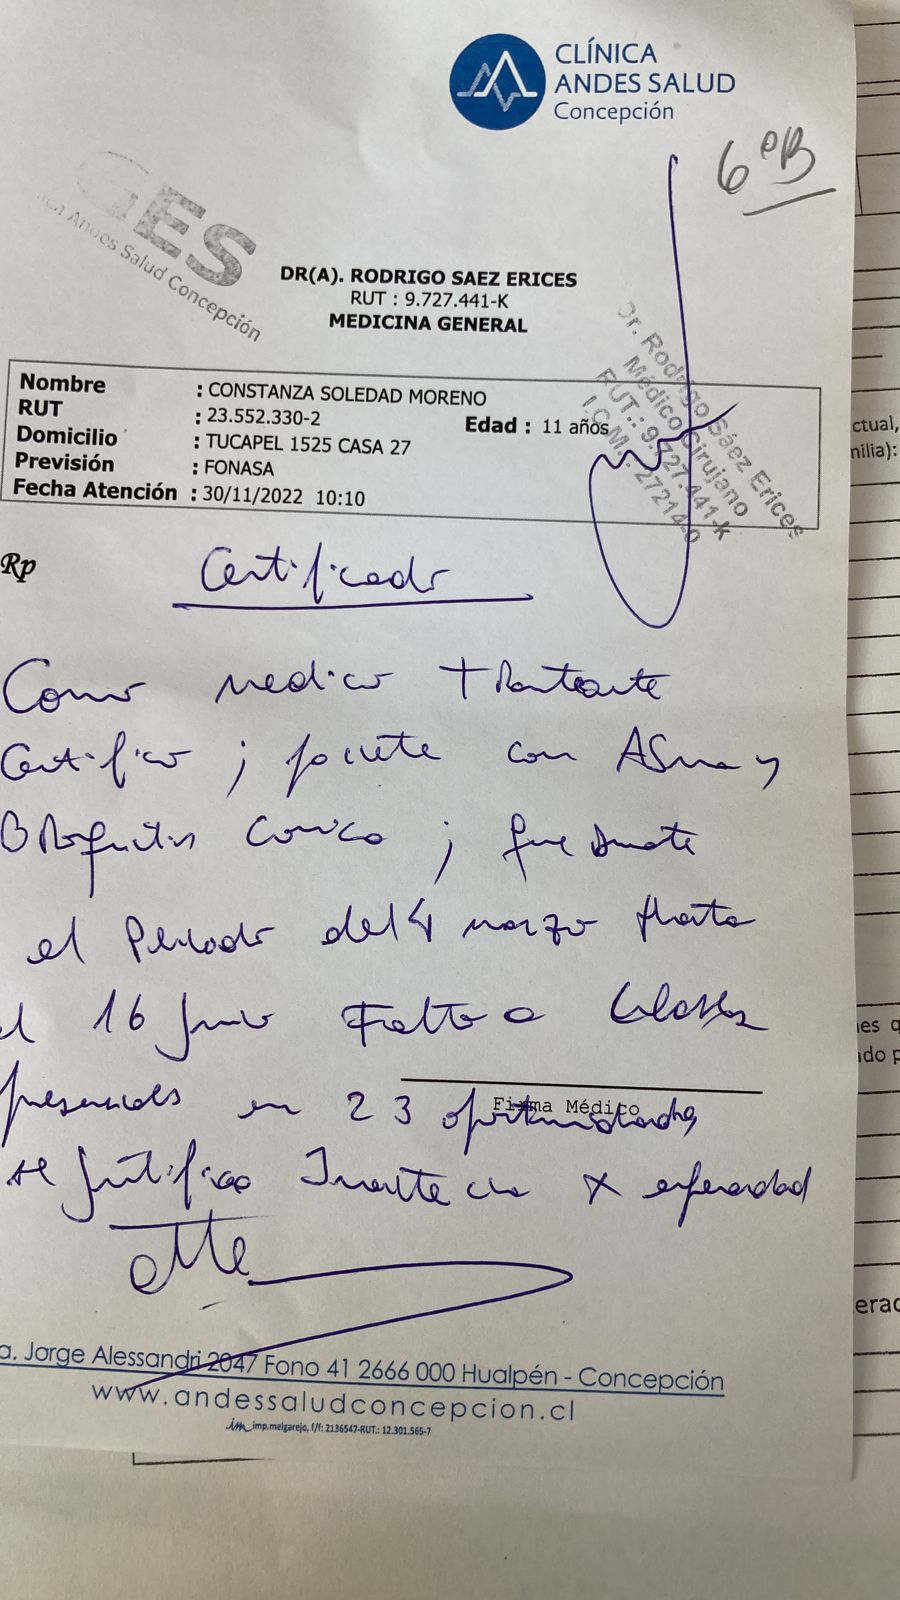 CLÍNICA
ANDES SALUD
Concepción
6ºB
GES
ica Andes Salud Concepción
DR(A). RODRIGO SAEZ ERICES
RUT : 9.727.441-K
MEDICINA GENERAL
Dr. Rodrigo Sáez Erices
Médico Cirujano
RUT.: 9.727.441-k
I.C.M.: 27214-0
Nombre : CONSTANZA SOLEDAD MORENO
RUT : 23.552.330-2 Edad : 11 años
Domicilio : TUCAPEL 1525 CASA 27
Previsión : FONASA
Fecha Atención : 30/11/2022 10:10
Rp
Certificado
Como medico tratante
Certifico ; paciente con Asma y
; que durante
el Periodo del 4 marzo hasta
el 16 Junio Falto a Clases
presenciales en 23 oportunidades
Firma Médico
se justifica Inasistencia x enfermedad
Atte
a. Jorge Alessandri 2047 Fono 41 2666 000 Hualpén - Concepción
www.andessaludconcepcion.cl
im imp.melgarejo, f/f: 2136547-RUT.: 12.301.565-7
ctual,
nilia):
nes q
ido p
erac